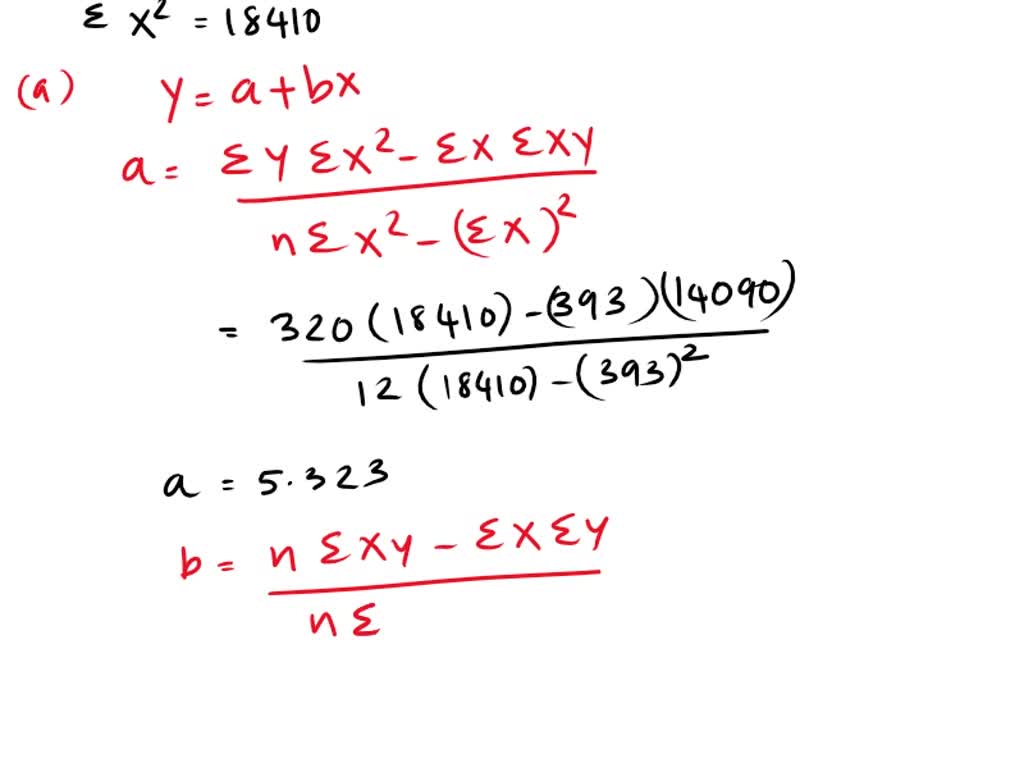 Σ x² = 18410
(a) y = a + bx
a = Σy Σx² - Σx Σxy
n Σx² - (Σx)²
= 320 (18410) - (393)(14090)
12 (18410) - (393)²
a = 5.323
b = n Σxy - Σx Σy
n Σ